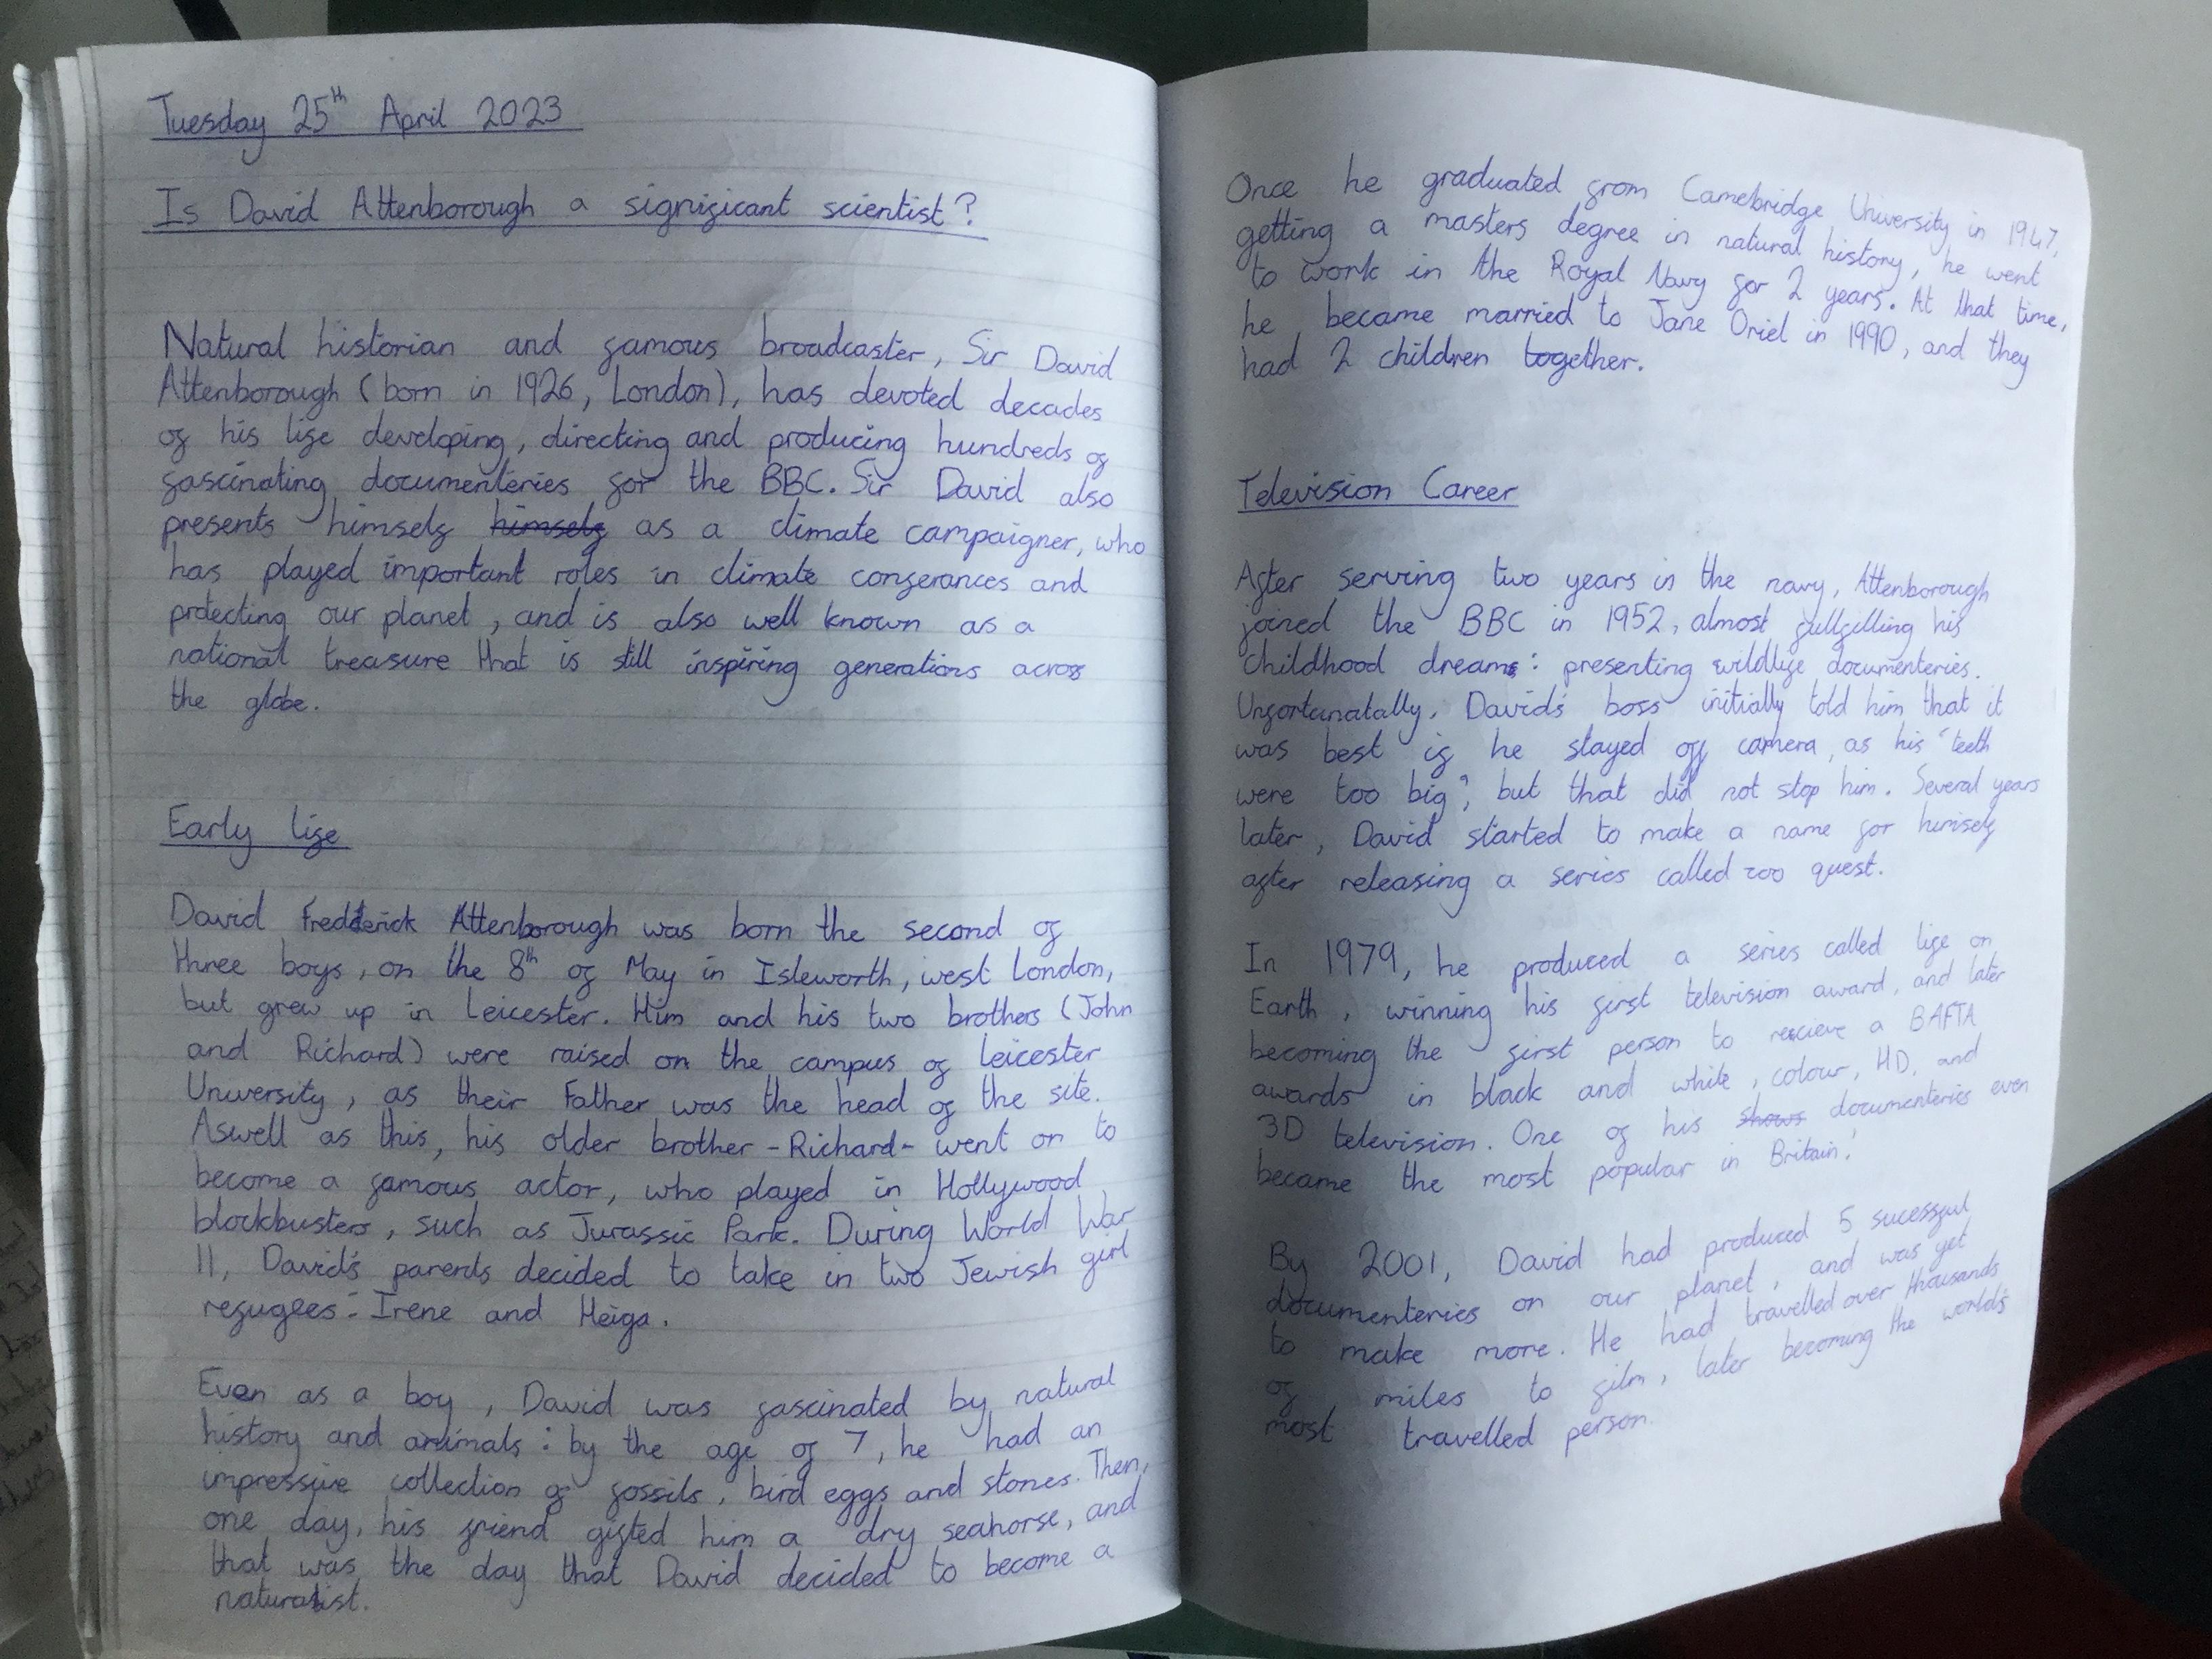 Tuesday 25th April 2023
Is David Attenborough a significant scientist?
Natural historian and famous broadcaster, Sir David
Attenborough (born in 1926, London), has devoted decades
of his life developing, directing and producing hundreds of
fascinating documenteries for the BBC. Sir David also
presents himself himself as a climate campaigner, who
has played important roles in climate conferances and
protecting our planet, and is also well known as a
national treasure that is still inspiring generations across
the globe.
Early life
David Frederick Attenborough was born the second of
three boys, on the 8th of May in Isleworth, west London,
but grew up in Leicester. Him and his two brothers (John
and Richard) were raised on the campus of Leicester
University, as their Father was the head of the site.
Aswell as this, his older brother -Richard- went on to
become a famous actor, who played in Hollywood
blockbusters, such as Jurassic Park. During World War
11, David's parents decided to take in two Jewish girl
refugees: Irene and Heiga.
Even as a boy, David was fascinated by natural
history and animals: by the age of 7, he had an
impressive collection of fossils, bird eggs and stones. Then,
one day, his friend gifted him a dry seahorse, and
that was the day that David decided to become a
naturalist.
Once he graduated from Camebridge University in 1947,
getting a masters degree in natural history, he went
to work in the Royal Navy for 2 years. At that time,
he became married to Jane Oriel in 1990, and they
had 2 children together.
Television Career
After serving two years in the navy, Attenborough
joined the BBC in 1952, almost fullfilling his
childhood dreams: presenting wildlife documenteries.
Unfortunatally, David's boss initially told him that it
was best if he stayed off camera, as his 'teeth
were too big', but that did not stop him. Several years
later, David started to make a name for himself
after releasing a series called zoo quest.
In 1979, he produced a series called life on
Earth, winning his first television award, and later
becoming the first person to recieve a BAFTA
awards in black and white, colour, HD, and
3D television. One of his shows documenteries even
became the most popular in Britain!
By 2001, David had produced 5 sucessful
documenteries on our planet, and was yet
to make more. He had travelled over thousands
of miles to film, later becoming the world's
most travelled person.